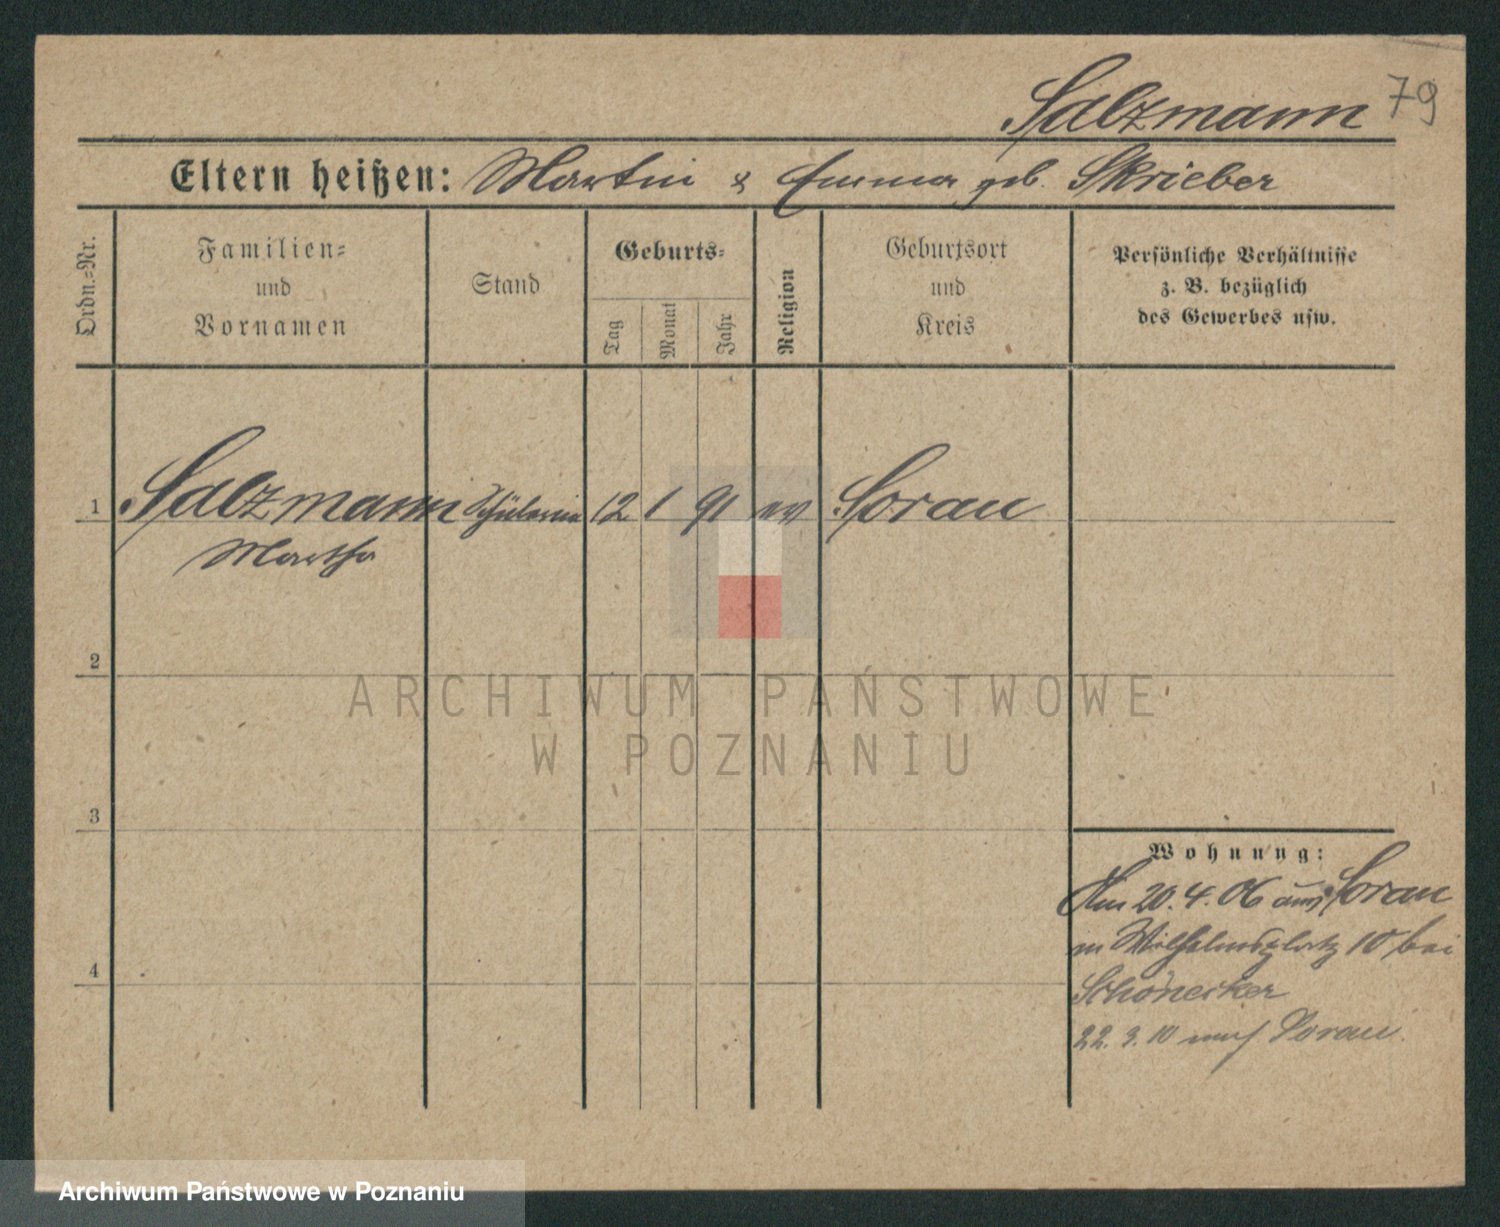 Salzmann 79
Eltern heißen: Martin & Emma geb. Skrieber
Ordn.-Nr.
Familien-
und
Vornamen
Stand
Geburts-
Tag
Monat
Jahr
Religion
Geburtsort
und
Kreis
Persönliche Verhältnisse
z. B. bezüglich
des Gewerbes usw.
1 Salzmann Schülerin 12 1 91 ev Sorau
Martha
2
3
4
Wohnung:
Am 20.4.06 aus Sorau
n Wilhelmsplatz 10 bei
Schönecker
22.3.10 nach Sorau.
ARCHIWUM PAŃSTWOWE
W POZNANIU
Archiwum Państwowe w Poznaniu